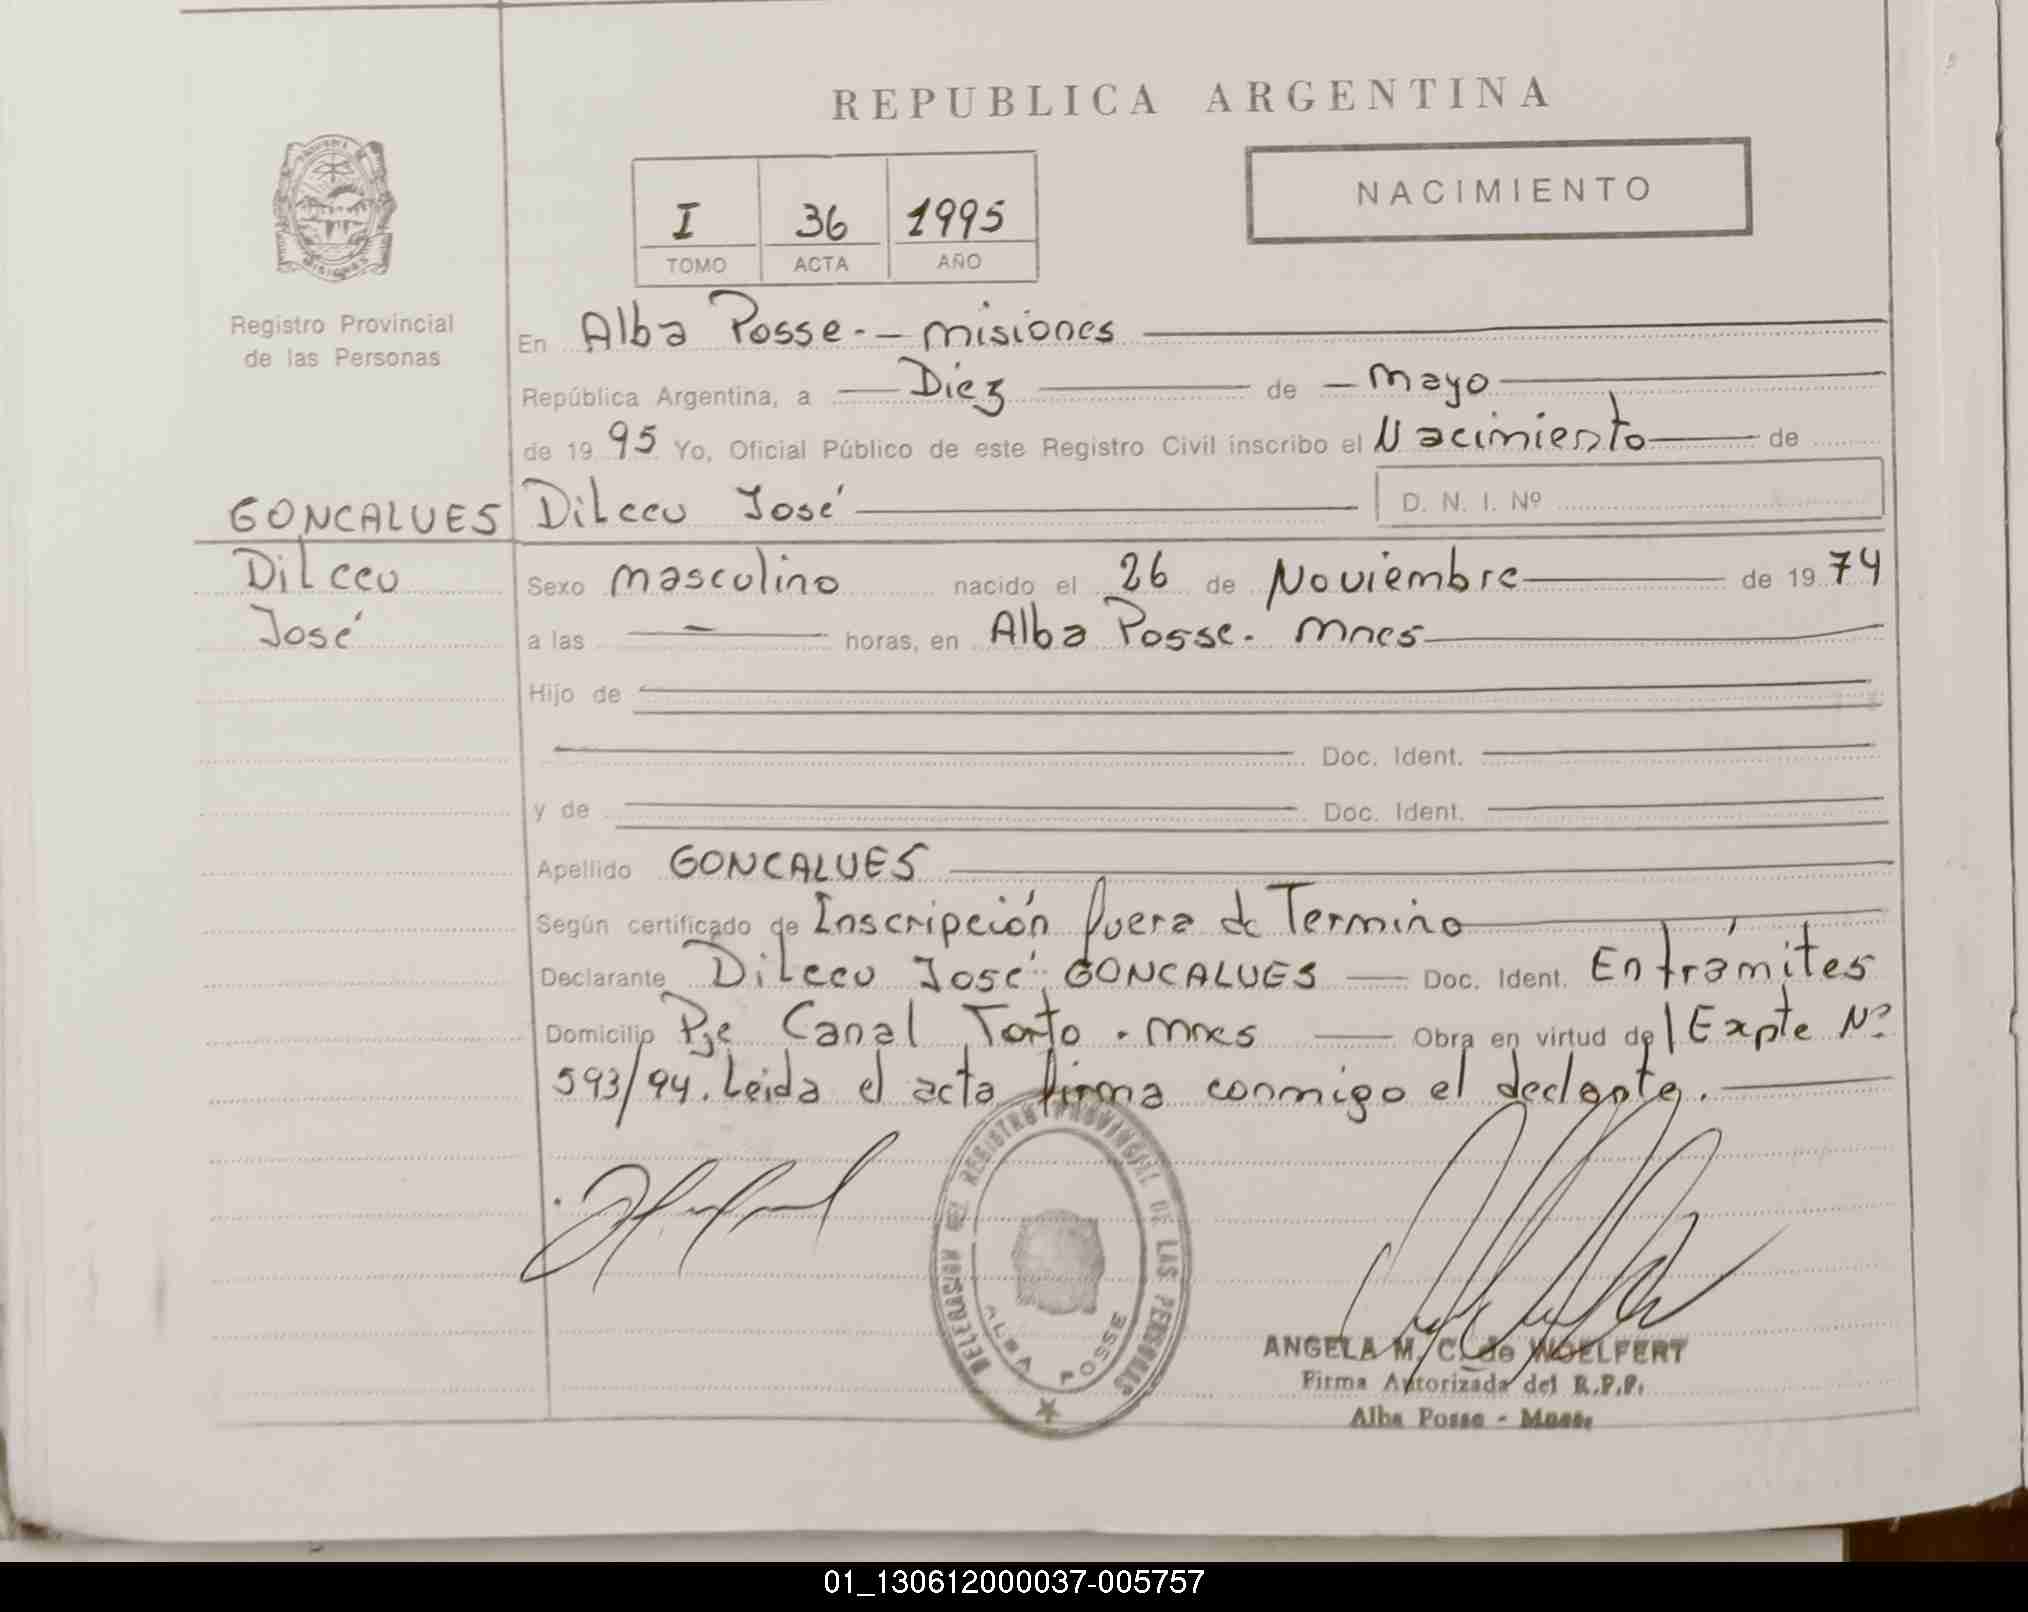 REPUBLICA ARGENTINA
NACIMIENTO
I 36 1995
TOMO ACTA AÑO
Registro Provincial
de las Personas
En Alba Posse - - misiones
República Argentina, a Diez de mayo
de 19 95 Yo, Oficial Público de este Registro Civil inscribo el Nacimiento de
GONCALVES Dilceu José D. N. I. Nº
Dilceu
José
Sexo masculino nacido el 26 de Noviembre de 19 74
a las — horas, en Alba Posse. Mnes
Hijo de
Doc. Ident.
y de Doc. Ident.
Apellido GONCALVES
Según certificado de Inscripción fuera de Término
Declarante Dilceu José GONCALVES Doc. Ident. En trámites
Domicilio Pje Canal Torto . mnes Obra en virtud del Expte Nº
593/94. Leida el acta firma conmigo el declante.
DELEGACION DEL REGISTRO PROVINCIAL DE LAS PERSONAS
ALBA POSSE
ANGELA M. C. de WOELFERT
Firma Autorizada del R.P.P.
Alba Posse - Mnes.
01_130612000037-005757